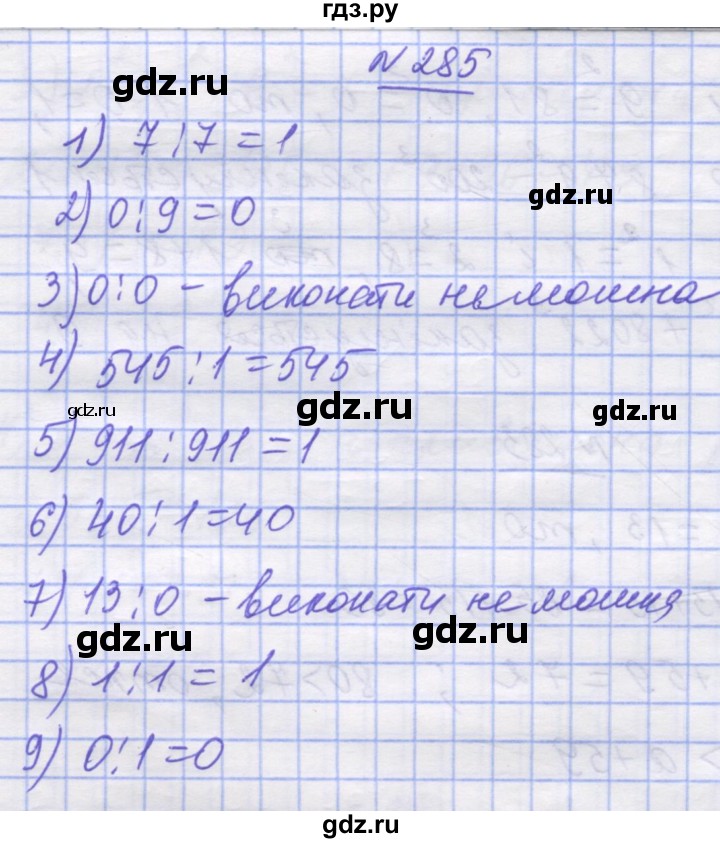 гдз.ру
№ 285
gdz.ru
1) 7 : 7 = 1
gdz.ru
2) 0 : 9 = 0
3) 0 : 0 – виконати не можна
4) 545 : 1 = 545
gdz.ru
gdz.ru
gdz.ru
5) 911 : 911 = 1
6) 40 : 1 = 40
7) 13 : 0 – виконати не можна
gdz.ru
gdz.ru
8) 1 : 1 = 1
9) 0 : 1 = 0
gdz.ru